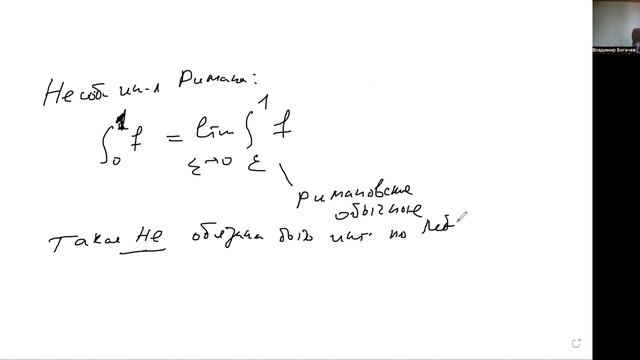 Несобств. инт-л Римана:
∫₀¹ f = lim_{ε→0} ∫_ε¹ f
римановские
обычные
Такая не обязана быть инт. по Леб
Владимир Богачев